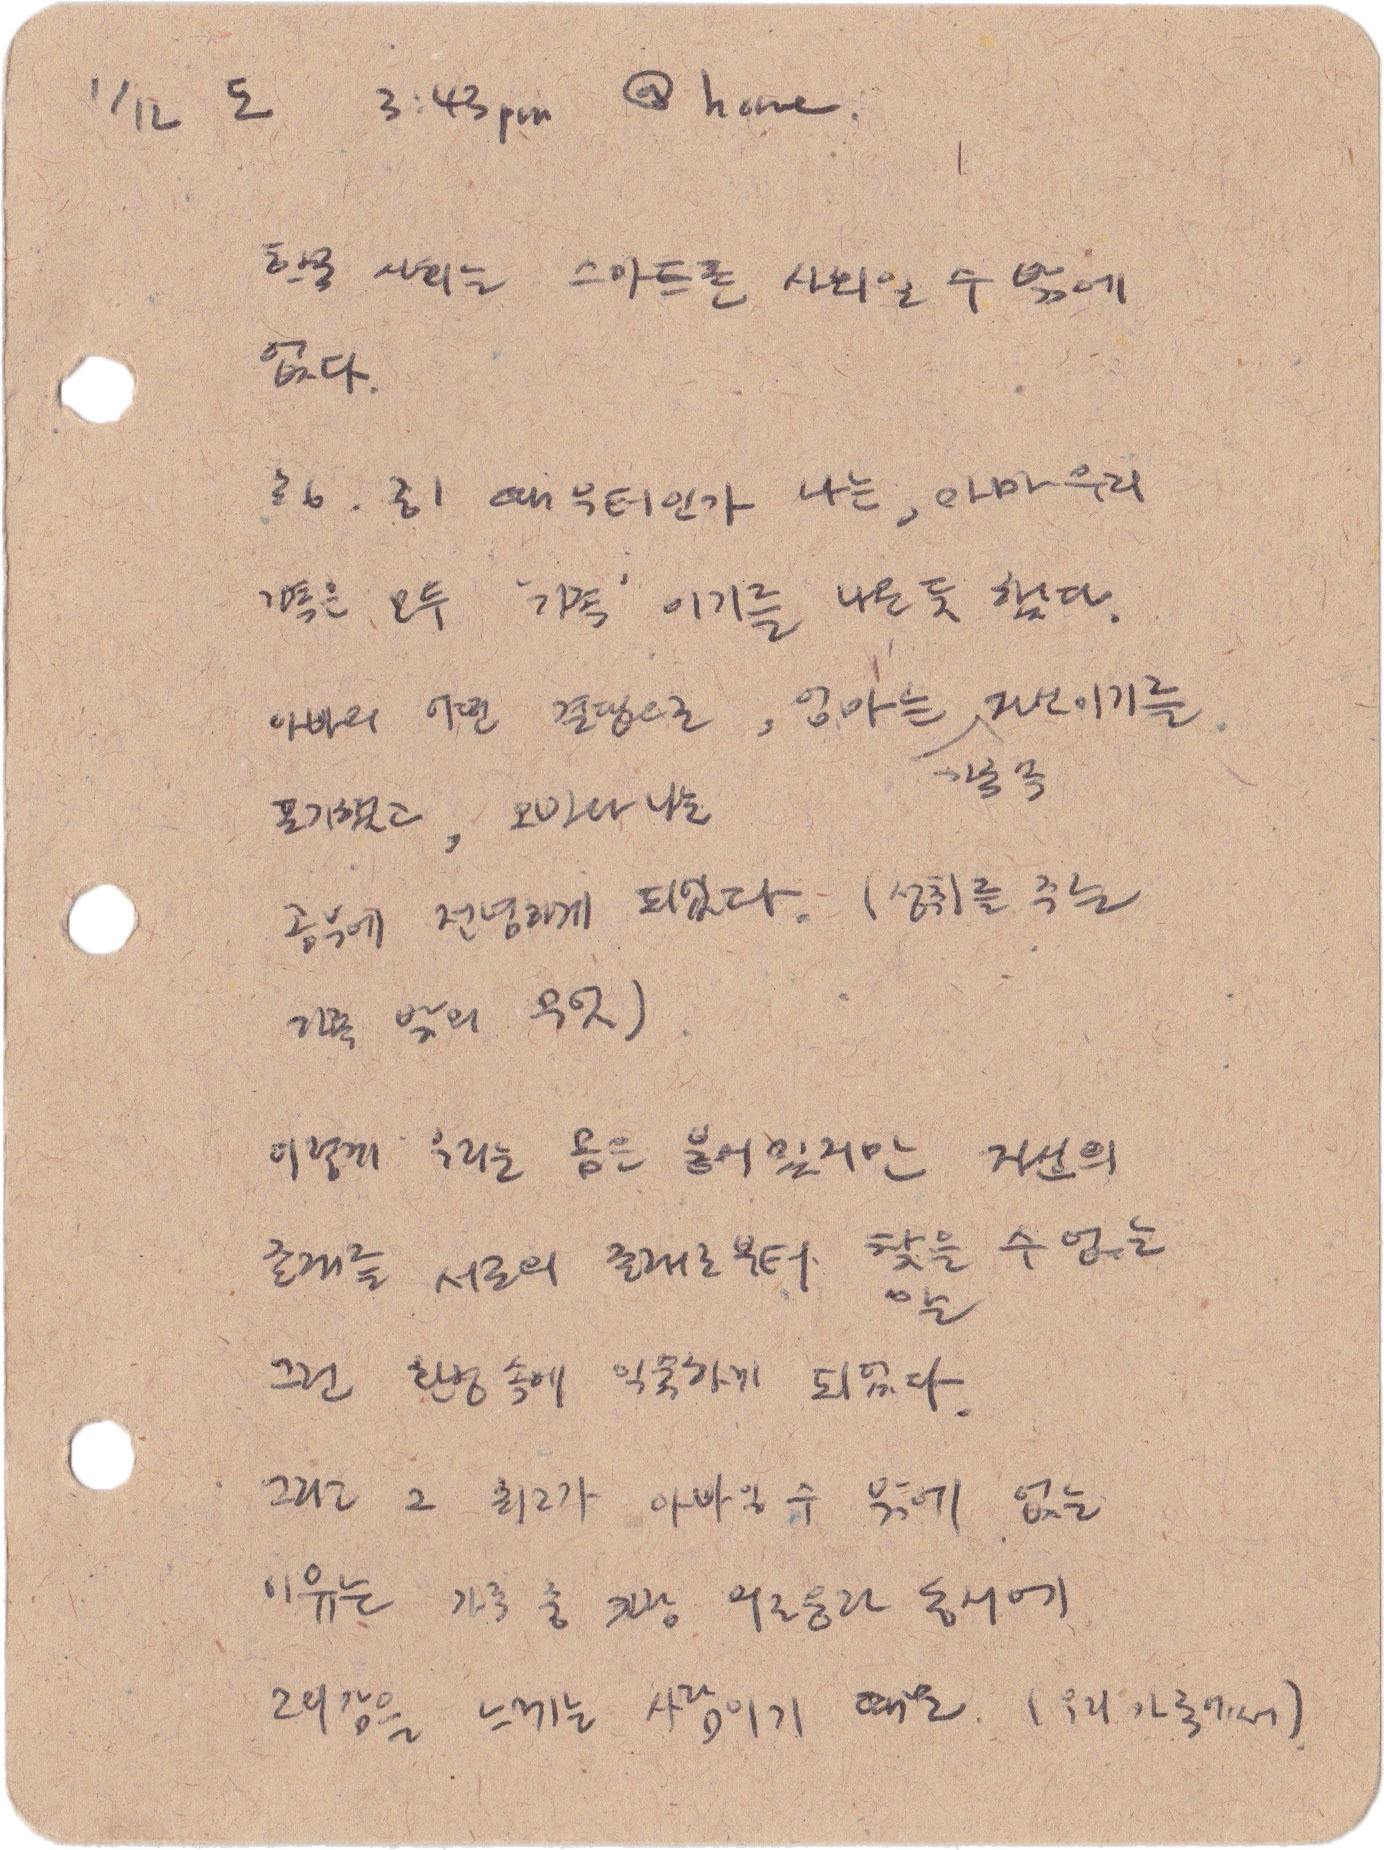 1/12 토 3:43pm @home.
한국 사회는 스마트폰 사회일 수 밖에
없다.
초6. 중1 때부터인가 나는, 아마 우리
가족은 모두 '가족' 이기를 놔둔 듯 했다.
아빠의 어떤 결정으로, 엄마는 자신이기를
가족 중
포기했고, 오빠와 나는
공부에 전념하게 되었다. (성취를 주는
가족 밖의 무엇)
이렇게 우리는 몸은 붙어있지만 자신의
존재를 서로의 존재로부터 찾을 수 없는
않는
그런 환경 속에 익숙하게 되었다.
그리고 그 최고가 아빠일 수 밖에 없는
이유는 가족 중 가장 외로움과 동시에
고뇌감을 느끼는 사람이기 때문. (우리 가족에서)